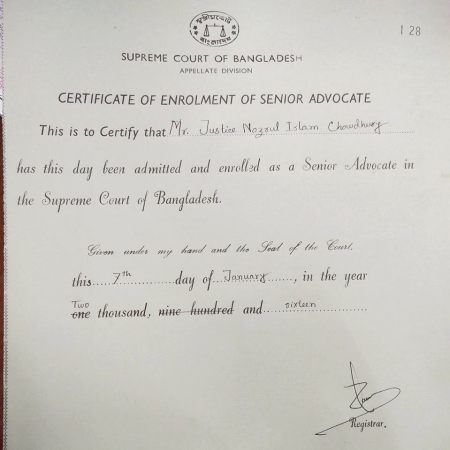 128
SUPREME COURT OF BANGLADESH
APPELLATE DIVISION
CERTIFICATE OF ENROLMENT OF SENIOR ADVOCATE
This is to Certify that Mr. Justice Nozrul Islam Chowdhury
has this day been admitted and enrolled as a Senior Advocate in
the Supreme Court of Bangladesh.
Given under my hand and the Seal of the Court.
this 7th day of January, in the year
Two
one thousand, nine hundred and sixteen
Registrar.